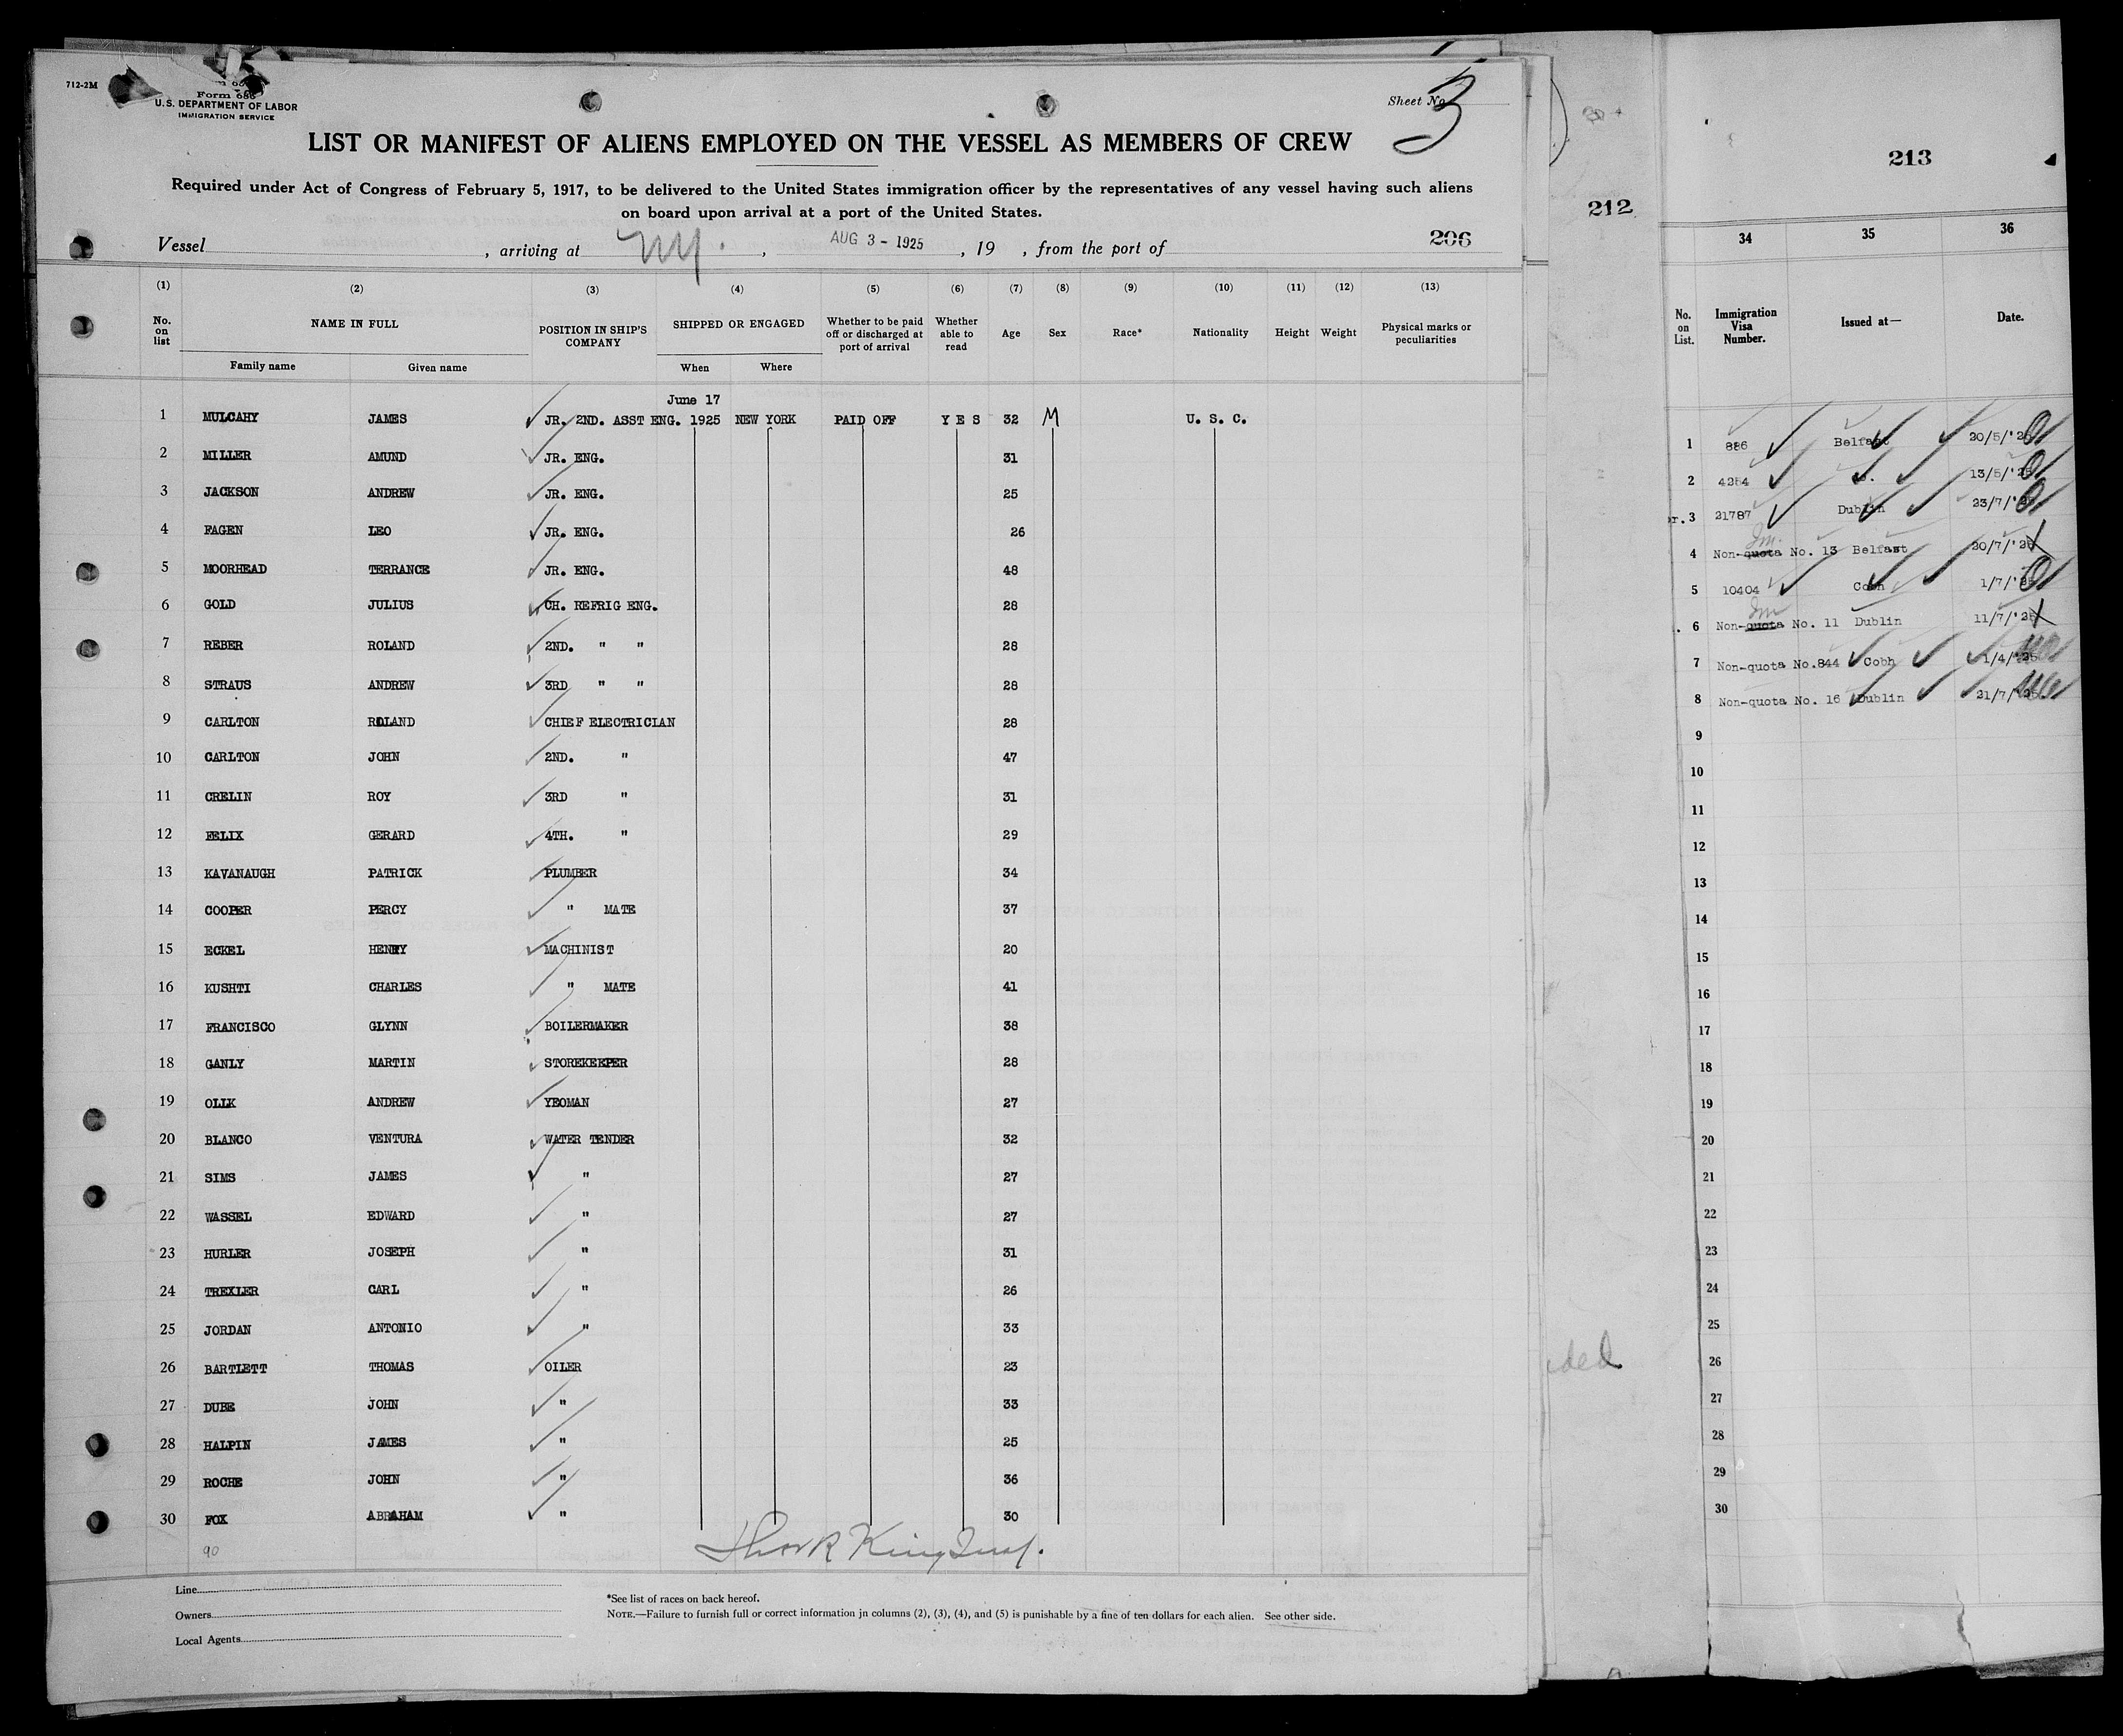 712-2M
Form 686
U.S. DEPARTMENT OF LABOR
IMMIGRATION SERVICE
Sheet No. 3
LIST OR MANIFEST OF ALIENS EMPLOYED ON THE VESSEL AS MEMBERS OF CREW
Required under Act of Congress of February 5, 1917, to be delivered to the United States immigration officer by the representatives of any vessel having such aliens
on board upon arrival at a port of the United States.
Vessel , arriving at NY. , AUG 3 - 1925 , 19 , from the port of 206
(1) (2) (3) (4) (5) (6) (7) (8) (9) (10) (11) (12) (13)
No. on list NAME IN FULL POSITION IN SHIP'S COMPANY SHIPPED OR ENGAGED Whether to be paid off or discharged at port of arrival Whether able to read Age Sex Race* Nationality Height Weight Physical marks or peculiarities
Family name Given name When Where
June 17
1 MULCAHY JAMES JR. 2ND. ASST ENG. 1925 NEW YORK PAID OFF YES 32 M U. S. C.
2 MILLER AMUND JR. ENG. 31
3 JACKSON ANDREW JR. ENG. 25
4 FAGEN LEO JR. ENG. 26
5 MOORHEAD TERRANCE JR. ENG. 48
6 GOLD JULIUS CH. REFRIG ENG. 28
7 REBER ROLAND 2ND. " " 28
8 STRAUS ANDREW 3RD " " 28
9 CARLTON ROLAND CHIEF ELECTRICIAN 28
10 CARLTON JOHN 2ND. " 47
11 CRELIN ROY 3RD " 31
12 FELIX GERARD 4TH. " 29
13 KAVANAUGH PATRICK PLUMBER 34
14 COOPER PERCY " MATE 37
15 ECKEL HENRY MACHINIST 20
16 KUSHTI CHARLES " MATE 41
17 FRANCISCO GLYNN BOILERMAKER 38
18 GANLY MARTIN STOREKEEPER 28
19 OLLK ANDREW YEOMAN 27
20 BLANCO VENTURA WATER TENDER 32
21 SIMS JAMES " 27
22 WASSEL EDWARD " 27
23 HURLER JOSEPH " 31
24 TREXLER CARL " 26
25 JORDAN ANTONIO " 33
26 BARTLETT THOMAS OILER 23
27 DUBE JOHN " 33
28 HALPIN JAMES " 25
29 ROCHE JOHN " 36
30 FOX ABRAHAM " 30
90
Line
Owners
Local Agents
*See list of races on back hereof.
NOTE.—Failure to furnish full or correct information in columns (2), (3), (4), and (5) is punishable by a fine of ten dollars for each alien. See other side.
212
ded
213
34 35 36
No. on List. Immigration Visa Number. Issued at— Date.
1 886 Belfast 20/5/'25
2 4254 13/5/'25
3 21787 Dublin 23/7/'25
4 Non-quota No. 13 Belfast 20/7/'25
5 10404 Cobh 1/7/'25
6 Non-quota No. 11 Dublin 11/7/'25
7 Non-quota No.844 Cobh 1/4/'25
8 Non-quota No. 16 Dublin 21/7/'25
9
10
11
12
13
14
15
16
17
18
19
20
21
22
23
24
25
26
27
28
29
30